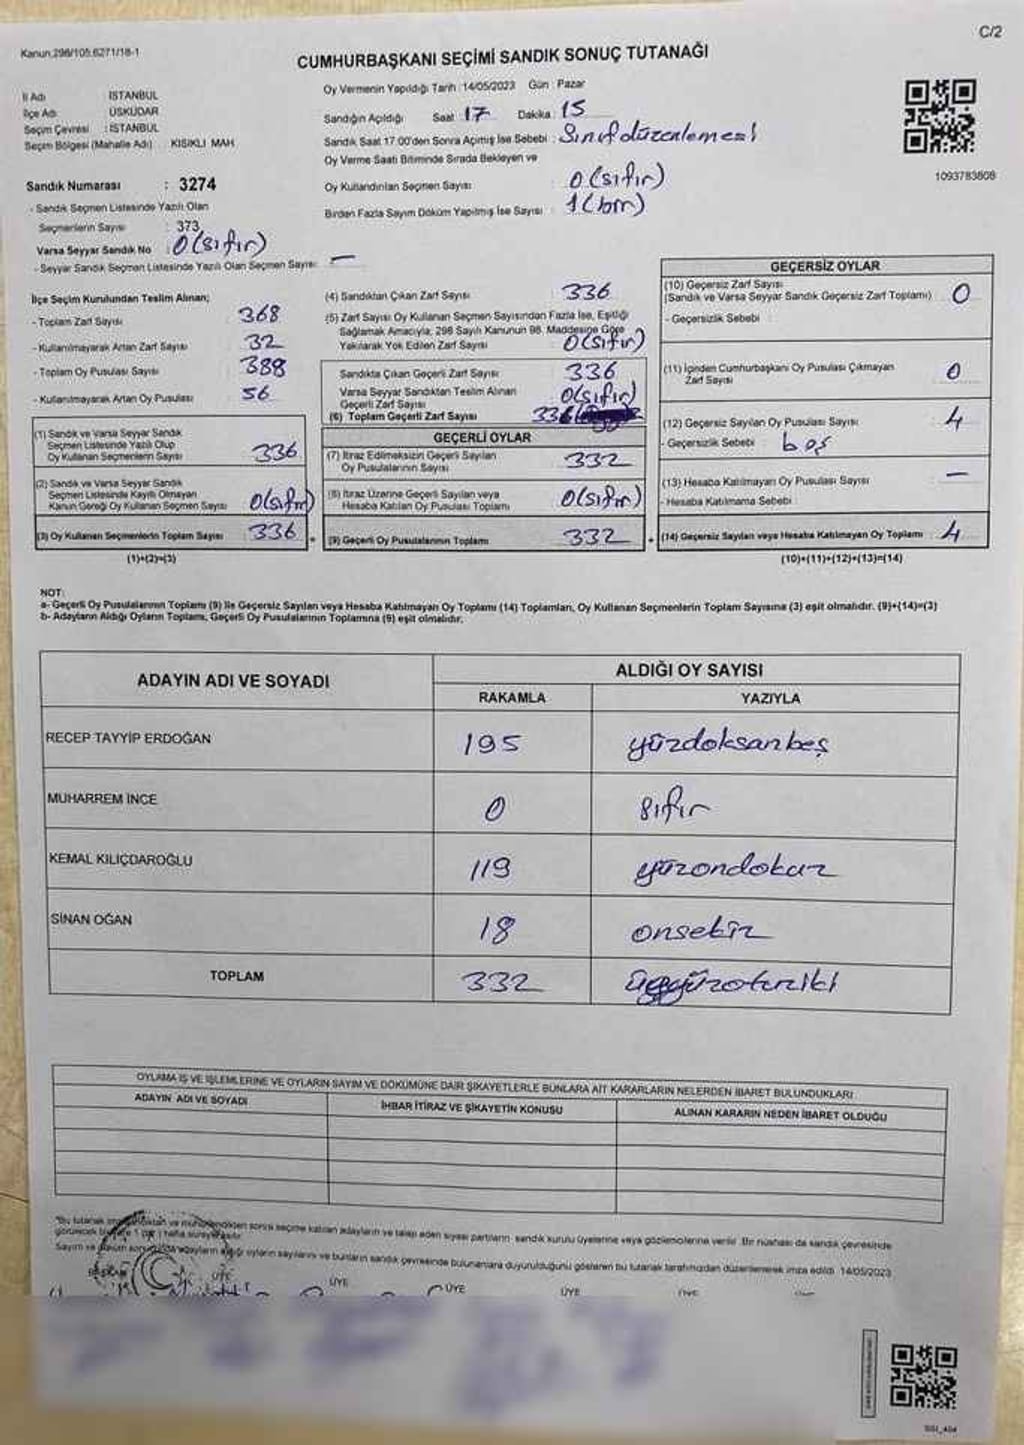 C/2
Kanun.298/105.6271/18-1
CUMHURBAŞKANI SEÇİMİ SANDIK SONUÇ TUTANAĞI
İl Adı : İSTANBUL
İlçe Adı : ÜSKÜDAR
Seçim Çevresi : İSTANBUL
Seçim Bölgesi (Mahalle Adı) : KISIKLI MAH
Sandık Numarası : 3274
- Sandık Seçmen Listesinde Yazılı Olan
Seçmenlerin Sayısı : 373
Varsa Seyyar Sandık No : 0(sıfır)
- Seyyar Sandık Seçmen Listesinde Yazılı Olan Seçmen Sayısı: —
Oy Vermenin Yapıldığı Tarih : 14/05/2023 Gün : Pazar
Sandığın Açıldığı Saat : 17 Dakika : 15
Sandık Saat 17:00'den Sonra Açılmış İse Sebebi : Sınıf düzenlemesi
Oy Verme Saati Bitiminde Sırada Bekleyen ve
Oy Kullandırılan Seçmen Sayısı : 0(sıfır)
Birden Fazla Sayım Döküm Yapılmış İse Sayısı : 1(bir)
1093783808
İlçe Seçim Kurulundan Teslim Alınan;
- Toplam Zarf Sayısı : 368
- Kullanılmayarak Artan Zarf Sayısı : 32
- Toplam Oy Pusulası Sayısı : 388
- Kullanılmayarak Artan Oy Pusulası : 56
(1) Sandık ve Varsa Seyyar Sandık
Seçmen Listesinde Yazılı Olup
Oy Kullanan Seçmenlerin Sayısı : 336
(2) Sandık ve Varsa Seyyar Sandık
Seçmen Listesinde Kayıtlı Olmayan
Kanun Gereği Oy Kullanan Seçmen Sayısı : 0(sıfır)
(3) Oy Kullanan Seçmenlerin Toplam Sayısı : 336
(1)+(2)=(3)
(4) Sandıktan Çıkan Zarf Sayısı : 336
(5) Zarf Sayısı Oy Kullanan Seçmen Sayısından Fazla İse, Eşitliği
Sağlamak Amacıyla; 298 Sayılı Kanunun 98. Maddesine Göre
Yakılarak Yok Edilen Zarf Sayısı : 0(sıfır)
Sandıkta Çıkan Geçerli Zarf Sayısı : 336
Varsa Seyyar Sandıktan Teslim Alınan
Geçerli Zarf Sayısı : 0(sıfır)
(6) Toplam Geçerli Zarf Sayısı : 336
GEÇERLİ OYLAR
(7) İtiraz Edilmeksizin Geçerli Sayılan
Oy Pusulalarının Sayısı : 332
(8) İtiraz Üzerine Geçerli Sayılan veya
Hesaba Katılan Oy Pusulası Toplamı : 0(sıfır)
(9) Geçerli Oy Pusulalarının Toplamı : 332
GEÇERSİZ OYLAR
(10) Geçersiz Zarf Sayısı :
(Sandık ve Varsa Seyyar Sandık Geçersiz Zarf Toplamı) 0
- Geçersizlik Sebebi :
(11) İçinden Cumhurbaşkanı Oy Pusulası Çıkmayan
Zarf Sayısı : 0
(12) Geçersiz Sayılan Oy Pusulası Sayısı : 4
- Geçersizlik Sebebi : boş
(13) Hesaba Katılmayan Oy Pusulası Sayısı : —
- Hesaba Katılmama Sebebi :
(14) Geçersiz Sayılan veya Hesaba Katılmayan Oy Toplamı : 4
(10)+(11)+(12)+(13)=(14)
NOT:
a- Geçerli Oy Pusulalarının Toplamı (9) ile Geçersiz Sayılan veya Hesaba Katılmayan Oy Toplamı (14) Toplamları, Oy Kullanan Seçmenlerin Toplam Sayısına (3) eşit olmalıdır. (9)+(14)=(3)
b- Adayların Aldığı Oyların Toplamı, Geçerli Oy Pusulalarının Toplamına (9) eşit olmalıdır.
ADAYIN ADI VE SOYADI
ALDIĞI OY SAYISI
RAKAMLA YAZIYLA
RECEP TAYYİP ERDOĞAN 195 yüzdoksanbeş
MUHARREM İNCE 0 sıfır
KEMAL KILIÇDAROĞLU 119 yüzondokuz
SİNAN OĞAN 18 onsekiz
TOPLAM 332 üçyüzotuziki
OYLAMA İŞ VE İŞLEMLERİNE VE OYLARIN SAYIM VE DÖKÜMÜNE DAİR ŞİKAYETLERLE BUNLARA AİT KARARLARIN NELERDEN İBARET BULUNDUKLARI
ADAYIN ADI VE SOYADI İHBAR İTİRAZ VE ŞİKAYETİN KONUSU ALINAN KARARIN NEDEN İBARET OLDUĞU
"Bu tutanak ve mühürlendikten sonra seçime katılan adayların ve talep eden siyasi partilerin sandık kurulu üyelerine veya gözlemcilerine verilir. Bir nüshası da sandık çevresinde
görülecek bir yere 1 (bir) hafta süreyle asılır.
Sayım ve döküm sonunda adayların aldığı oyların sayılarını ve bunların sandık çevresinde bulunanlara duyurulduğunu gösteren bu tutanak tarafımızdan düzenlenerek imza edildi. 14/05/2023
BAŞKAN ÜYE ÜYE ÜYE ÜYE ÜYE